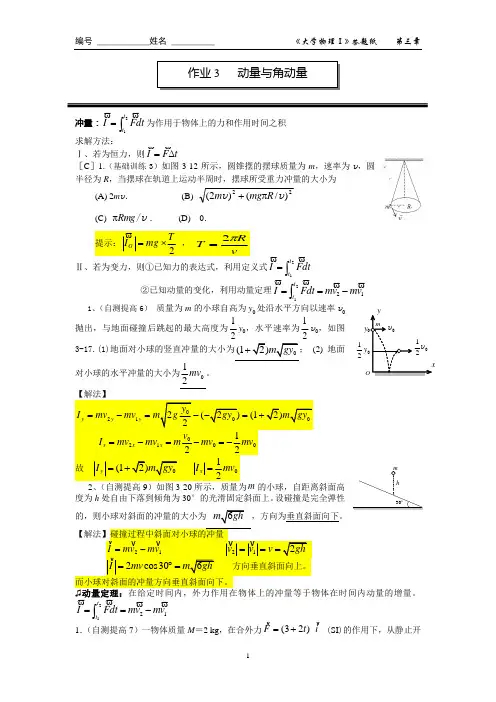 编号 ____________姓名 __________ 《大学物理Ⅰ》答题纸 第三章
作业3 动量与角动量
冲量：I = ∫_{t₁}^{t₂} Fdt 为作用于物体上的力和作用时间之积
求解方法：
Ⅰ、若为恒力，则 I = FΔt
［C］1.（基础训练3）如图3-12所示，圆锥摆的摆球质量为m，速率为υ，圆
半径为R，当摆球在轨道上运动半周时，摆球所受重力冲量的大小为
(A) 2mυ． (B) √((2mυ)² + (mgπR/υ)²)
(C) πRmg/υ． (D) 0．
m R
υ
提示：|I_G| = mg × T/2 ， T = 2πR/v
Ⅱ、若为变力，则①已知力的表达式，利用定义式 I = ∫_{t₁}^{t₂} Fdt
②已知动量的变化，利用动量定理 I = ∫_{t₁}^{t₂} Fdt = mv₂ − mv₁
1、（自测提高6） 质量为m的小球自高为y₀处沿水平方向以速率υ₀
抛出，与地面碰撞后跳起的最大高度为 1/2 y₀，水平速率为 1/2 υ₀，如图
3-17.(1)地面对小球的竖直冲量的大小为 (1+√2)m√gy₀； (2) 地面
对小球的水平冲量的大小为 1/2 mv₀。
y
y₀ m υ₀
1/2 y₀ 1/2 υ₀
O x
【解法】
I_y = mv₂y − mv₁y = m√(2g y₀/2) − (−√(2gy₀)) = (1+√2)m√gy₀
I_x = mv₂x − mv₁x = m v₀/2 − mv₀ = −1/2 mv₀
故 |I_y| = (1+√2)m√gy₀ |I_x| = 1/2 mv₀
2、（自测提高9）如图3-20所示，质量为m的小球，自距离斜面高
度为h处自由下落到倾角为30°的光滑固定斜面上。设碰撞是完全弹性
的，则小球对斜面的冲量的大小为 m√6gh ，方向为垂直斜面向下。
m
h
30°
【解法】碰撞过程中斜面对小球的冲量
I = mv₂ − mv₁ |v₂| = |v₁| = v = √2gh
|I| = 2mv cos30° = m√6gh 方向垂直斜面向上。
而小球对斜面的冲量方向垂直斜面向下。
♫动量定理：在给定时间内，外力作用在物体上的冲量等于物体在时间内动量的增量。
I = ∫_{t₁}^{t₂} Fdt = mv₂ − mv₁
1．（自测提高7）一物体质量M＝2 kg，在合外力 F = (3+2t) i (SI)的作用下，从静止开
1